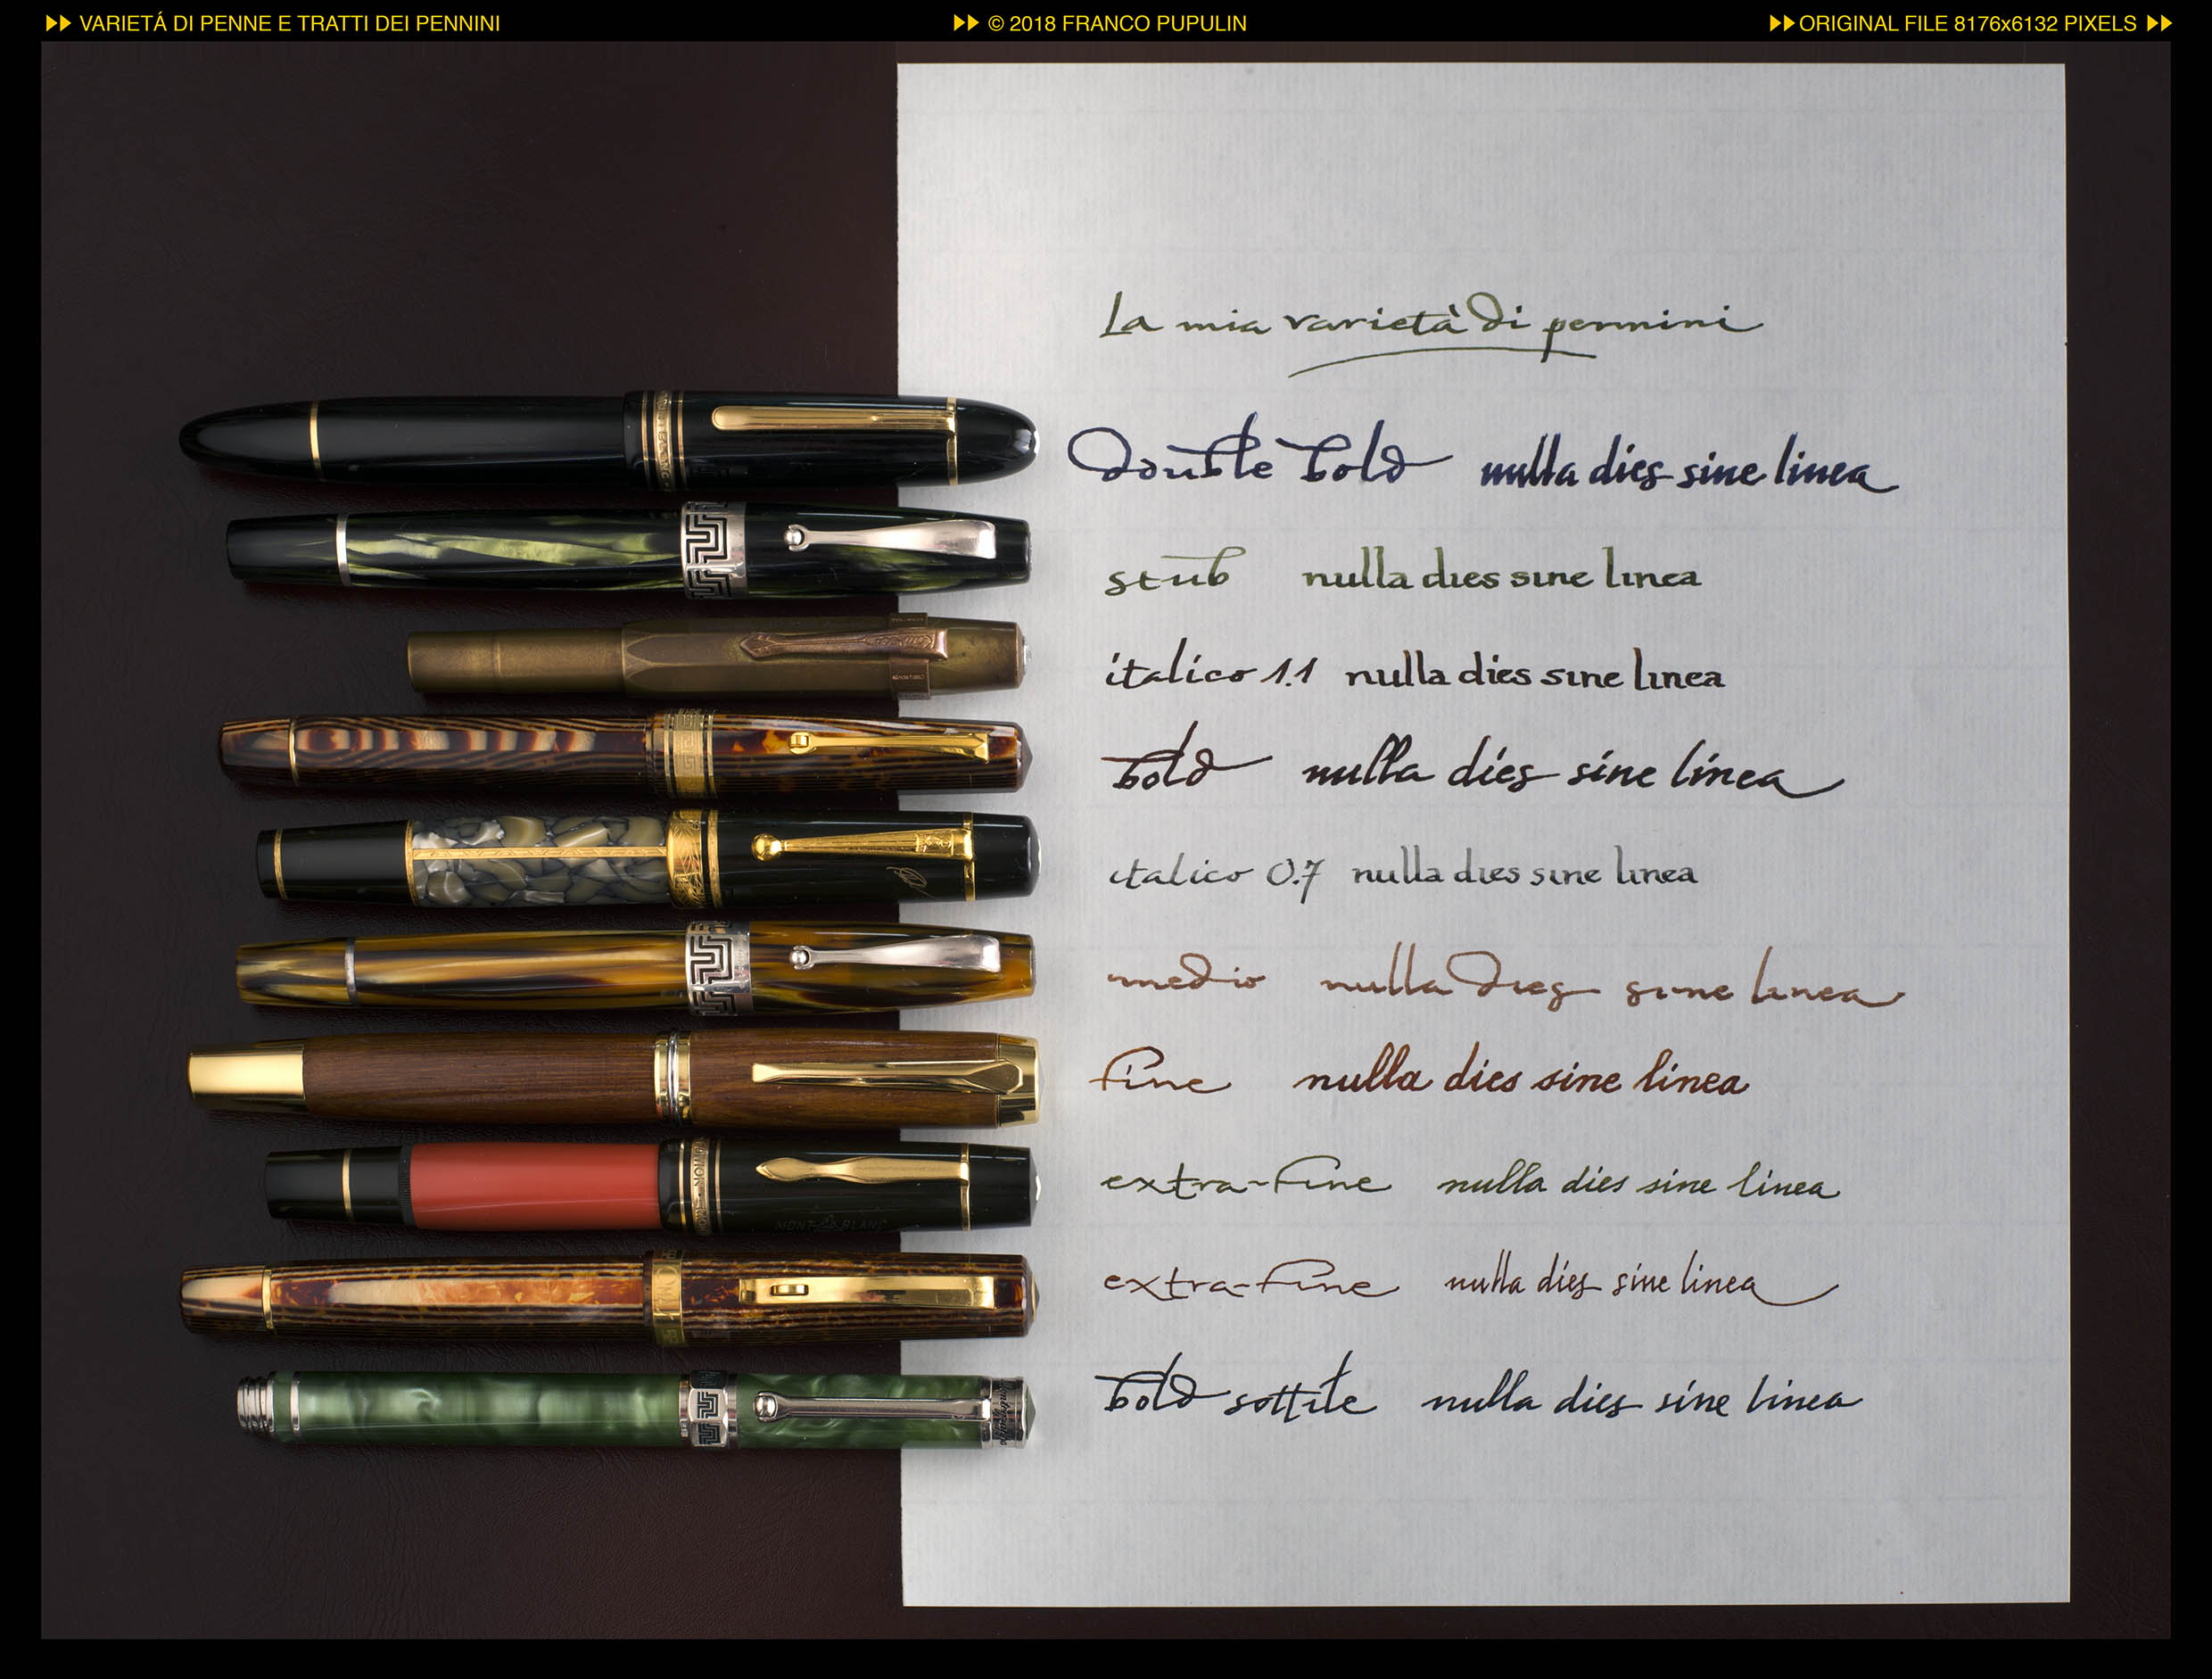 VARIETÁ DI PENNE E TRATTI DEI PENNINI © 2018 FRANCO PUPULIN ORIGINAL FILE 8176x6132 PIXELS
La mia varietà di pennini
double bold nulla dies sine linea
stub nulla dies sine linea
italico 1.1 nulla dies sine linea
bold nulla dies sine linea
italico 0.7 nulla dies sine linea
medio nulla dies sine linea
fine nulla dies sine linea
MONT BLANC
extra-fine nulla dies sine linea
extra-fine nulla dies sine linea
bold sottile nulla dies sine linea